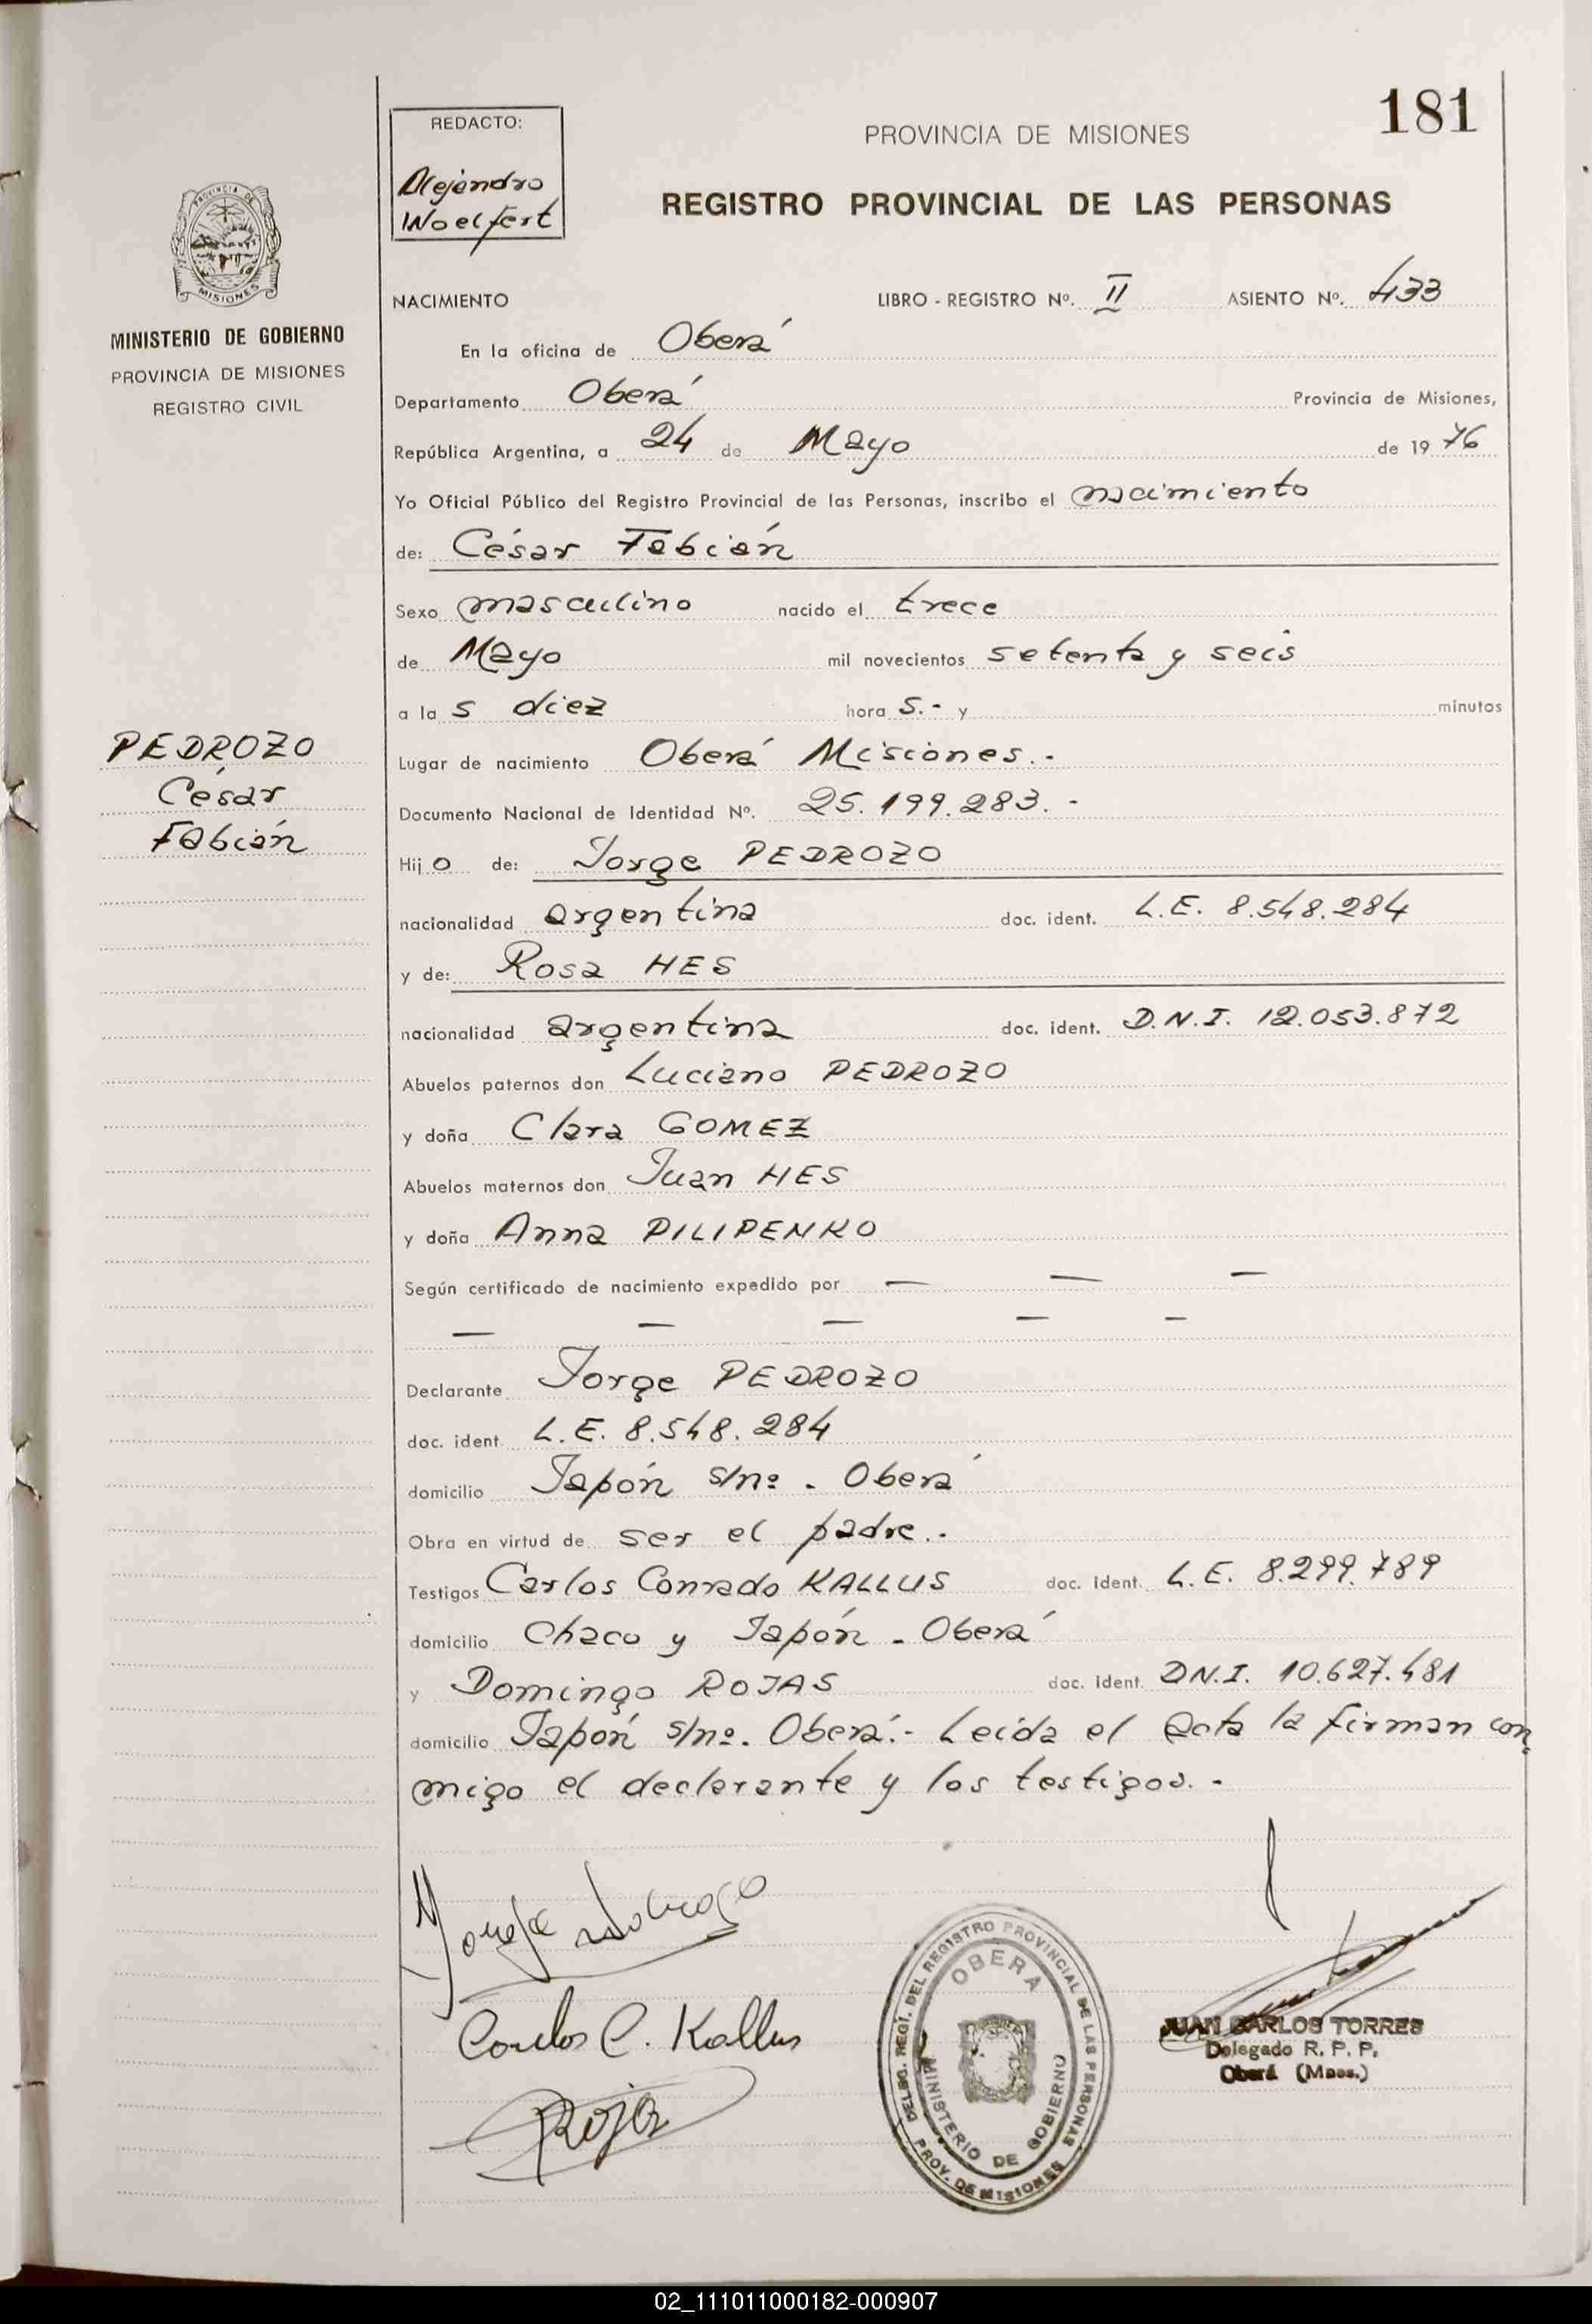 181
REDACTO:
Alejandro
Woelfert
PROVINCIA DE MISIONES
REGISTRO PROVINCIAL DE LAS PERSONAS
PROVINCIA DE
MISIONES
MINISTERIO DE GOBIERNO
PROVINCIA DE MISIONES
REGISTRO CIVIL
NACIMIENTO LIBRO - REGISTRO Nº. II ASIENTO Nº. 433
En la oficina de Oberá
Departamento Oberá Provincia de Misiones,
República Argentina, a 24 de Mayo de 19 76
Yo Oficial Público del Registro Provincial de las Personas, inscribo el nacimiento
de: César Fabián
Sexo masculino nacido el trece
de Mayo mil novecientos setenta y seis
a la s diez hora s.- y minutos
Lugar de nacimiento Oberá Misiones.-
PEDROZO
César
Fabián
Documento Nacional de Identidad Nº. 25.199.283.-
Hij o de: Jorge PEDROZO
nacionalidad argentina doc. ident. L.E. 8.548.284
y de: Rosa HES
nacionalidad argentina doc. ident. D.N.I. 12.053.872
Abuelos paternos don Luciano PEDROZO
y doña Clara GOMEZ
Abuelos maternos don Juan HES
y doña Anna PILIPENKO
Según certificado de nacimiento expedido por — — —
— — — — —
Declarante Jorge PEDROZO
doc. ident. L.E. 8.548.284
domicilio Japón s/nº. Oberá
Obra en virtud de ser el padre.-
Testigos Carlos Conrado KALLUS doc. Ident. L.E. 8.299.789
domicilio Chaco y Japón - Oberá
y Domingo ROJAS doc. ident. D.N.I. 10.627.481
domicilio Japón s/nº. Oberá.- Leída el acta la firman con
migo el declarante y los testigos.-
Jorge
Carlos C. Kallus
Rojas
DELEG. REGI. DEL REGISTRO PROVINCIAL DE LAS PERSONAS
OBERA
MINISTERIO DE GOBIERNO
PROV. DE MISIONES
JUAN CARLOS TORRES
Delegado R. P. P.
Oberá (Mnes.)
02_111011000182-000907